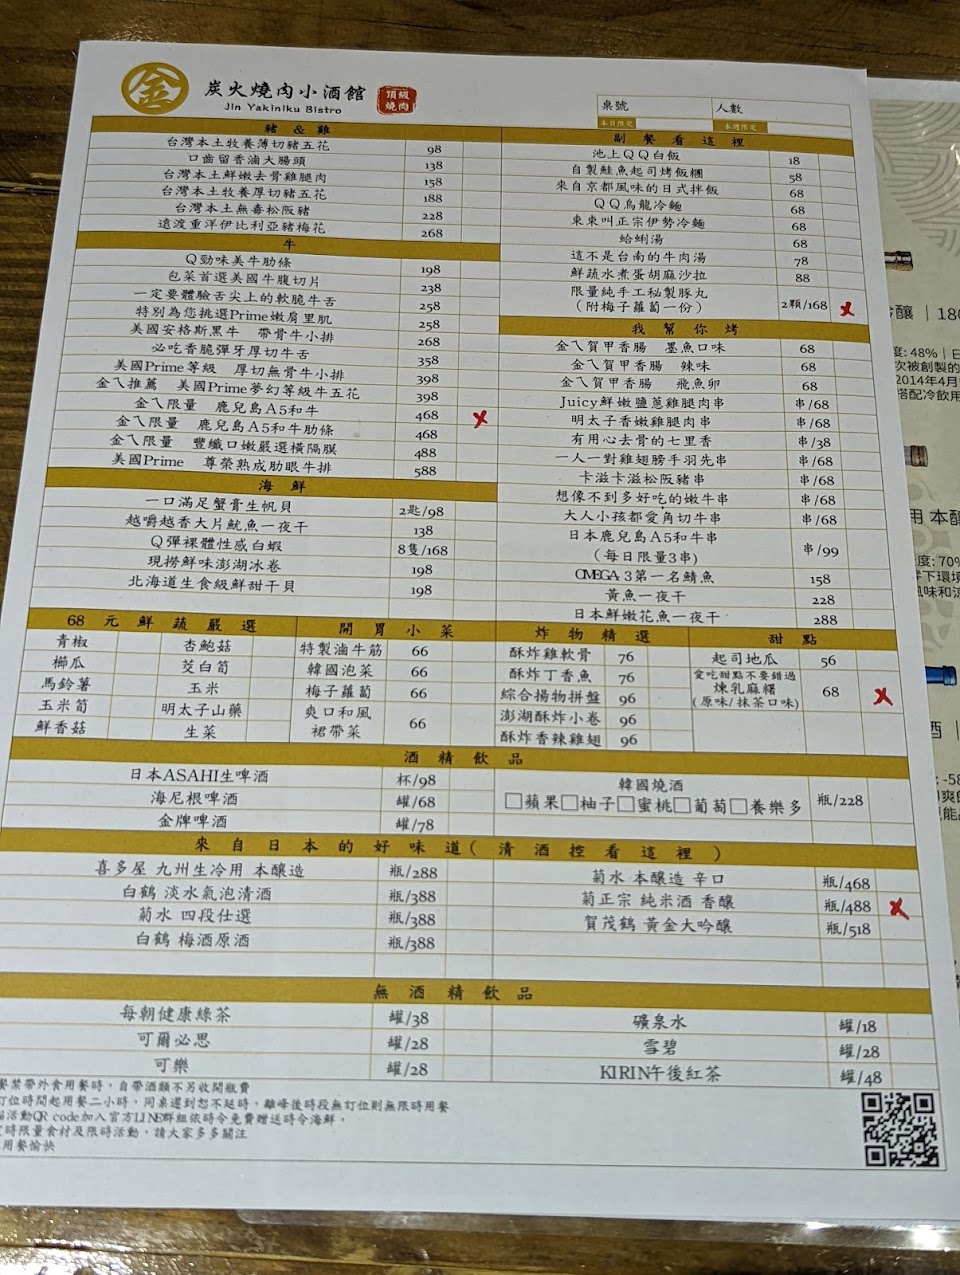 金
炭火燒肉小酒館
Jin Yakiniku Bistro
頂級
燒肉
桌號
人數
本日限定
本週限定
豬 & 雞
台灣本土牧養薄切豬五花 98
口齒留香滷大腸頭 138
台灣本土鮮嫩去骨雞腿肉 158
台灣本土牧養厚切豬五花 188
台灣本土無毒松阪豬 228
遠渡重洋伊比利亞豬梅花 268
牛
Q勁味美牛肋條 198
包菜首選美國牛腹切片 238
一定要體驗舌尖上的軟脆牛舌 258
特別為您挑選Prime嫩肩里肌 258
美國安格斯黑牛 帶骨牛小排 268
必吃香脆彈牙厚切牛舌 358
美國Prime等級 厚切無骨牛小排 398
金ㄟ推薦 美國Prime夢幻等級牛五花 398
金ㄟ限量 鹿兒島A5和牛 468
金ㄟ限量 鹿兒島A5和牛肋條 468
金ㄟ限量 豐纖口嫩嚴選橫隔膜 488
美國Prime 尊榮熟成肋眼牛排 588
海鮮
一口滿足蟹膏生帆貝 2匙/98
越嚼越香大片魷魚一夜干 138
Q彈裸體性感白蝦 8隻/168
現撈鮮味澎湖冰卷 198
北海道生食級鮮甜干貝 198
副餐看這裡
池上QQ白飯 18
自製鮭魚起司烤飯糰 58
來自京都風味的日式拌飯 68
QQ烏龍冷麵 68
東東叫正宗伊勢冷麵 68
蛤蜊湯 68
這不是台南的牛肉湯 78
鮮蔬水煮蛋胡麻沙拉 88
限量純手工秘製豚丸
(附梅子蘿蔔一份) 2顆/168
我幫你烤
金ㄟ賀甲香腸 墨魚口味 68
金ㄟ賀甲香腸 辣味 68
金ㄟ賀甲香腸 飛魚卵 68
Juicy鮮嫩鹽蔥雞腿肉串 串/68
明太子香嫩雞腿肉串 串/68
有用心去骨的七里香 串/38
一人一對雞翅膀手羽先串 串/68
卡滋卡滋松阪豬串 串/68
想像不到多好吃的嫩牛串 串/68
大人小孩都愛角切牛串 串/68
日本鹿兒島A5和牛串
(每日限量3串) 串/99
OMEGA-3第一名鯖魚 158
黃魚一夜干 228
日本鮮嫩花魚一夜干 288
68元鮮蔬嚴選
青椒 杏鮑菇
櫛瓜 茭白筍
馬鈴薯 玉米
玉米筍 明太子山藥
鮮香菇 生菜
開胃小菜
特製滷牛筋 66
韓國泡菜 66
梅子蘿蔔 66
爽口和風
裙帶菜 66
炸物精選
酥炸雞軟骨 76
酥炸丁香魚 76
綜合揚物拼盤 96
澎湖酥炸小卷 96
酥炸香辣雞翅 96
甜點
起司地瓜 56
愛吃甜點不要錯過
煉乳麻糬
(原味/抹茶口味) 68
酒精飲品
日本ASAHI生啤酒 杯/98
海尼根啤酒 罐/68
金牌啤酒 罐/78
韓國燒酒
□蘋果□柚子□蜜桃□葡萄□養樂多 瓶/228
來自日本的好味道(清酒控看這裡)
喜多屋 九州生冷用 本釀造 瓶/288
白鶴 淡水氣泡清酒 瓶/388
菊水 四段仕選 瓶/388
白鶴 梅酒原酒 瓶/388
菊水 本釀造 辛口 瓶/468
菊正宗 純米酒 香釀 瓶/488
賀茂鶴 黃金大吟釀 瓶/518
無酒精飲品
每朝健康綠茶 罐/38
可爾必思 罐/28
可樂 罐/28
礦泉水 罐/18
雪碧 罐/28
KIRIN午後紅茶 罐/48
餐禁帶外食用餐時，自帶酒類不另收開瓶費
訂位時間起用餐二小時，同桌遲到恕不延時，離峰後時段無訂位則無限時用餐
活動QR code加入官方LINE群組依時令免費贈送時令海鮮，
時限量食材及限時活動，請大家多多關注
用餐愉快
釀 | 180
度: 48% | 日
次被創製的
2014年4月
搭配冷飲用
用 本釀
度: 70%
零下環境
風味和
酒 |
: -58